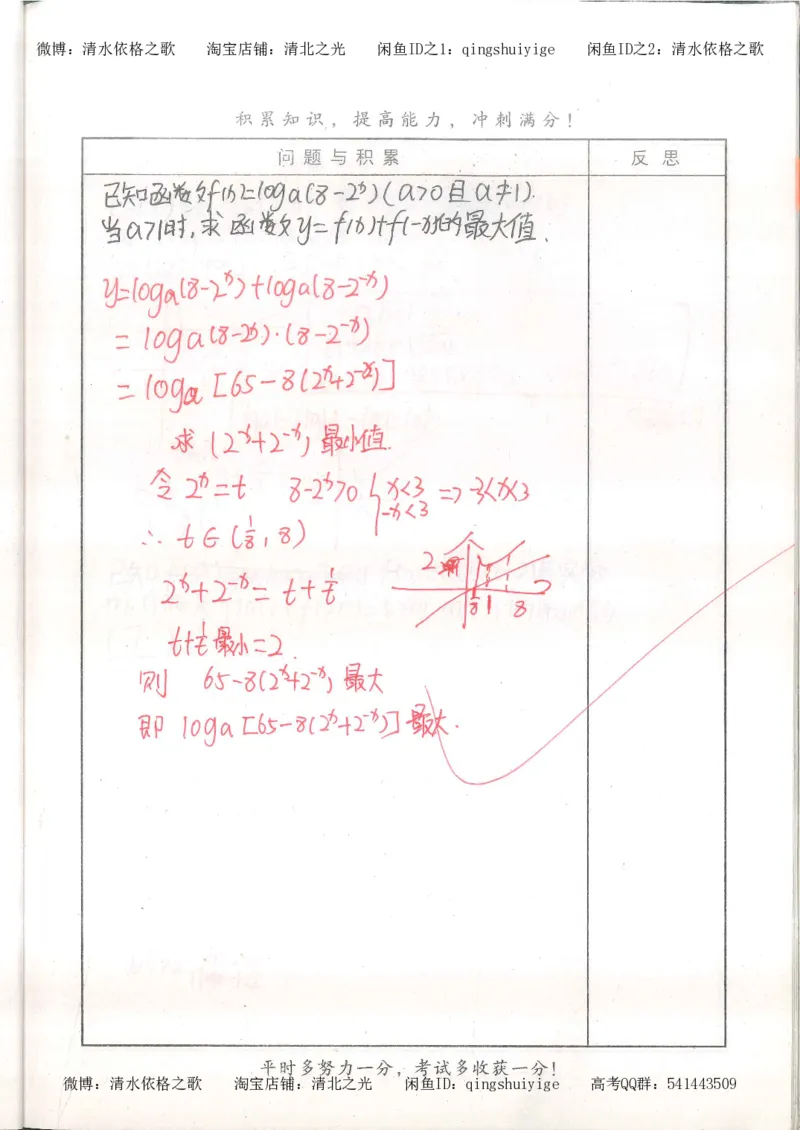 微博：清水依格之歌 淘宝店铺：清北之光 闲鱼ID之1：qingshuiyige 闲鱼ID之2：清水依格之歌
积累知识，提高能力，冲刺满分！
问题与积累 反思
已知函数f(x)=loga(8-2^x)(a>0且a≠1).
当a>1时,求函数y=f(x)+f(-x)的最大值.
y=loga(8-2^x)+loga(8-2^-x)
=loga(8-2^x)·(8-2^-x)
=loga[65-8(2^x+2^-x)]
求(2^x+2^-x)最小值.
令2^x=t 8-2^x>0 {x<3 => -3<x<3
-x<3
∴ t∈(1/8,8)
2
2^x+2^-x=t+1/t
1/8 1 8
t+1/t最小=2.
则 65-8(2^x+2^-x)最大
即 loga[65-8(2^x+2^-x)]最大.
平时多努力一分，考试多收获一分！
微博：清水依格之歌 淘宝店铺：清北之光 闲鱼ID：qingshuiyige 高考QQ群：541443509